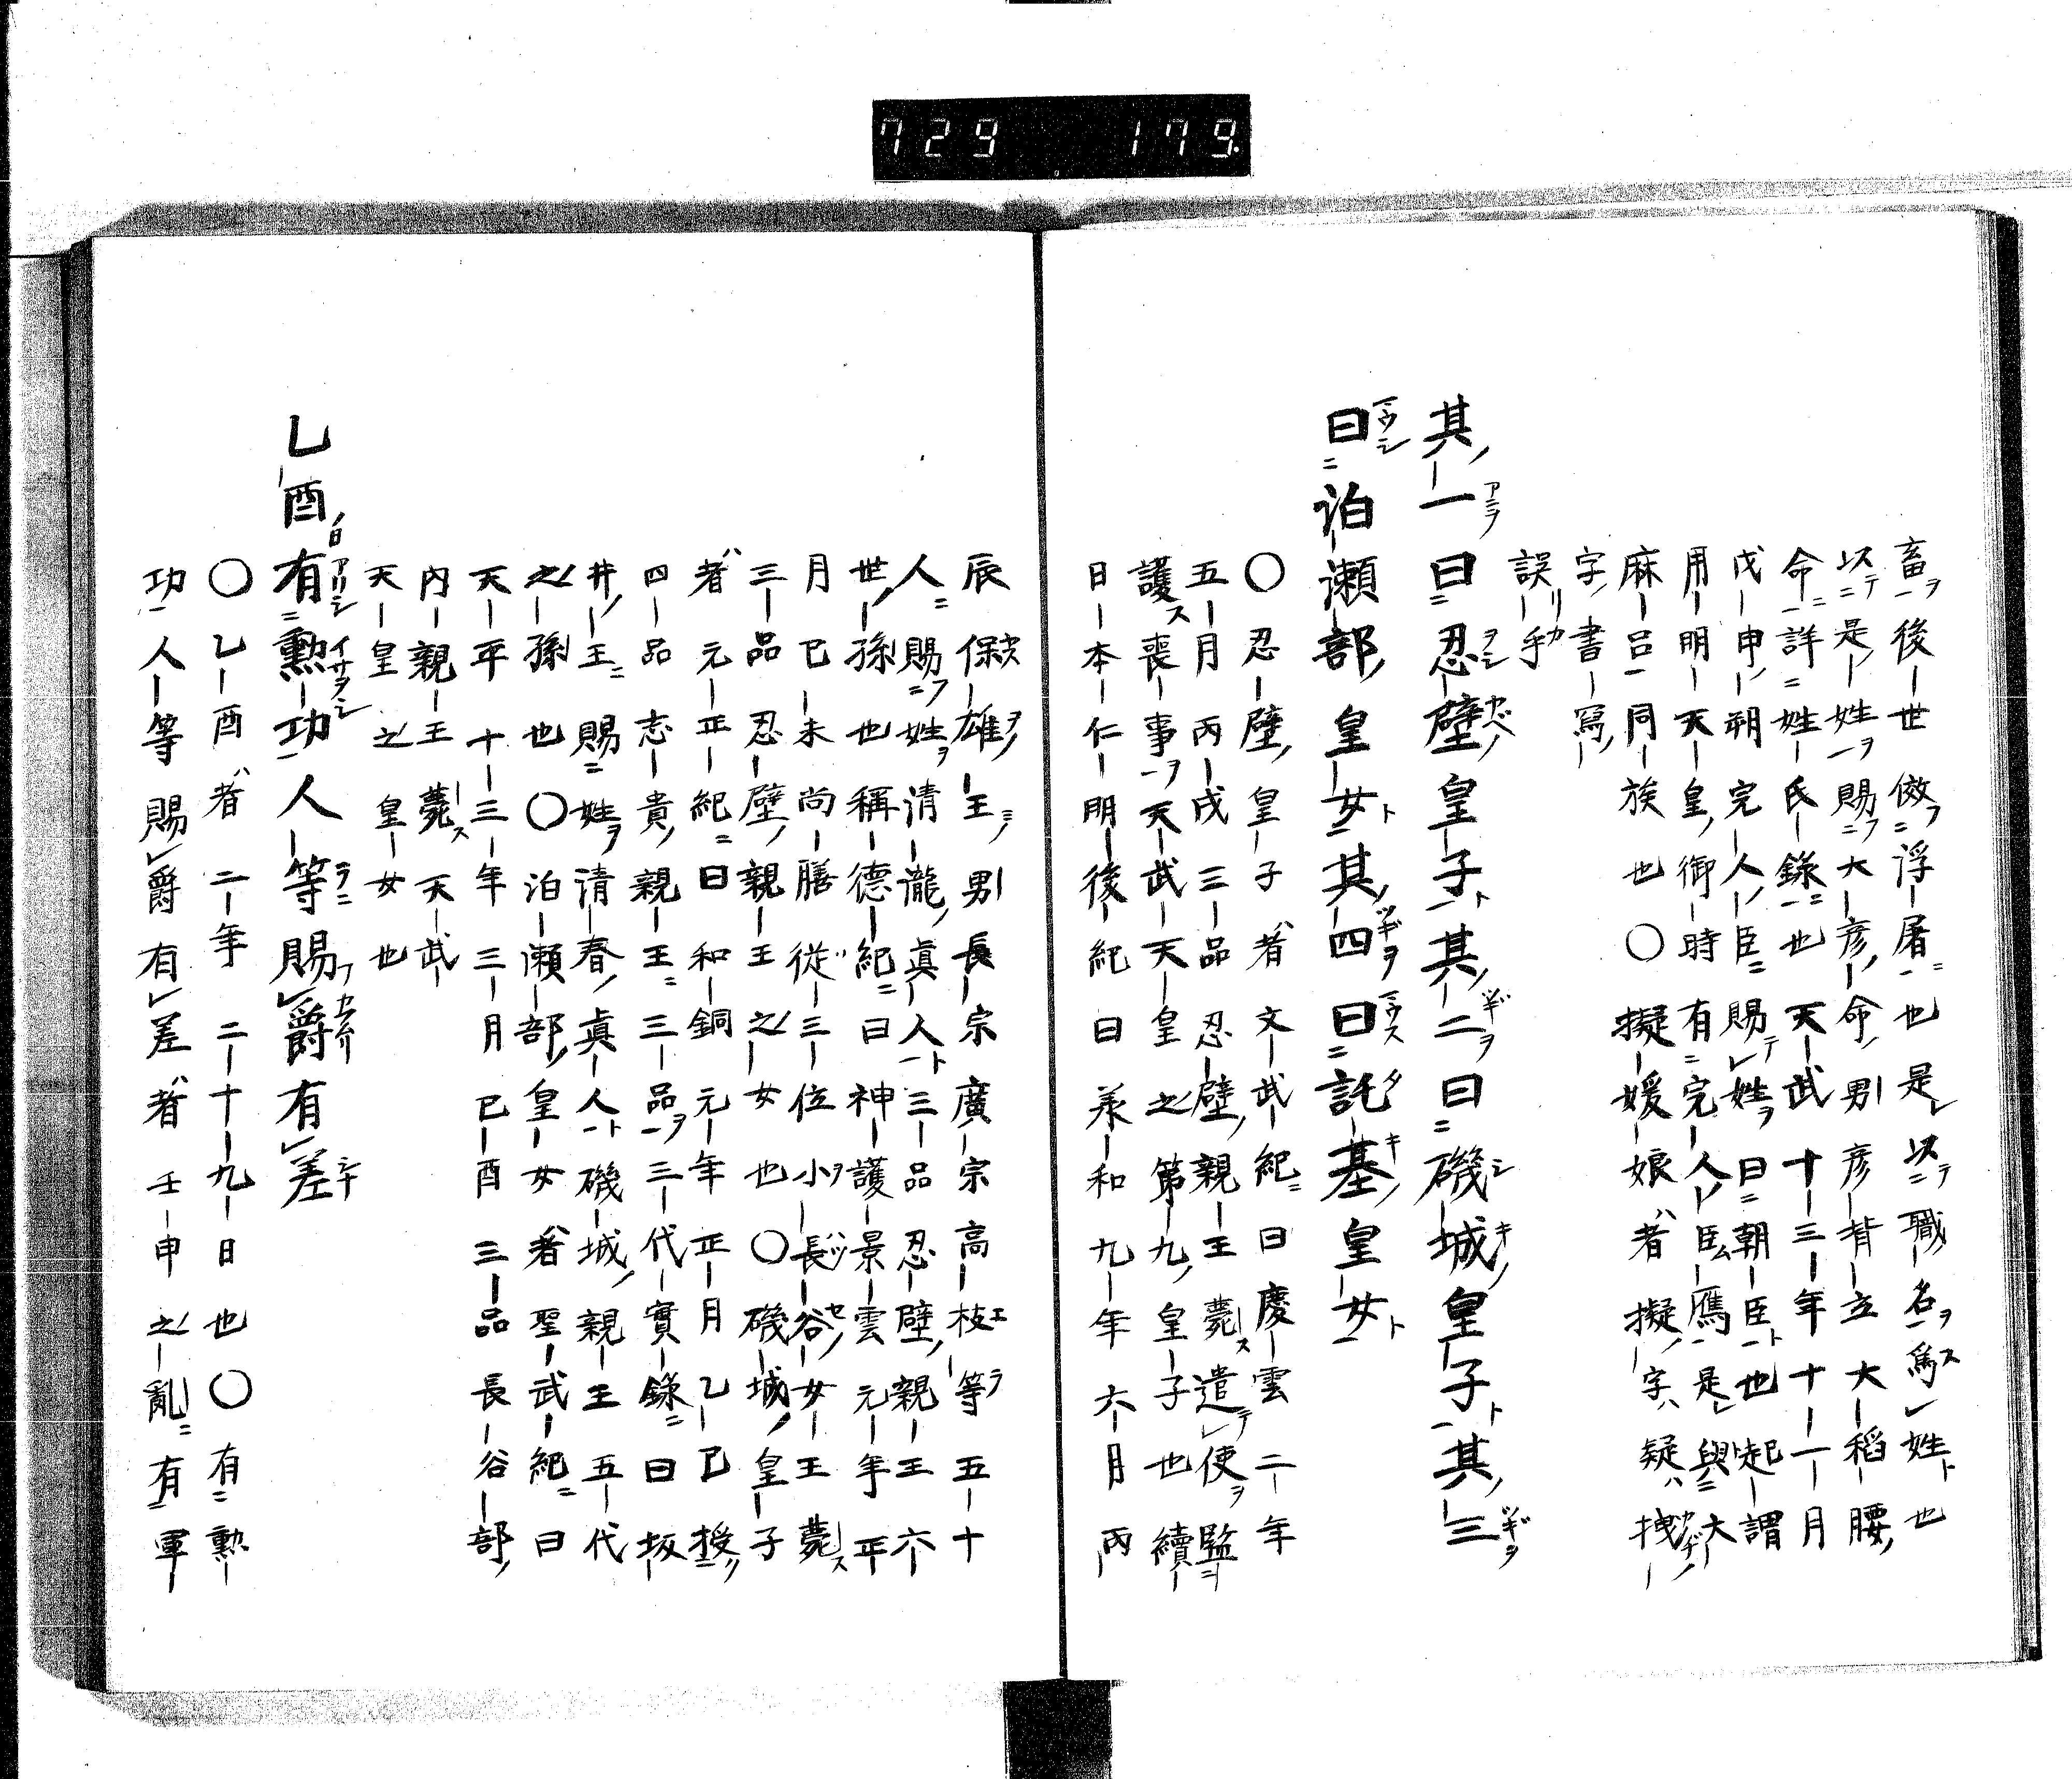 729 179.
畜後世倣浮屠也是以職名爲姓也
以是姓賜大彦命男彦背立大稻腰
命詳姓氏錄也天武十三年十一月
戊申朔宍人臣賜姓曰朝臣也起謂
用明天皇御時有宍人臣鴈是與大
麻呂同族也〇擬媛娘者擬字疑拽
字書寫
誤乎
其一曰忍壁皇子其二曰磯城皇子其三
曰泊瀬部皇女其四曰託基皇女
〇忍壁皇子者文武紀曰慶雲二年
五月丙戌三品忍壁親王薨遣使監
護喪事天武天皇之第九皇子也續
日本仁明後紀曰承和九年六月丙
辰保雄王男長宗廣宗高枝等五十
人賜姓清瀧眞人三品忍壁親王六
世孫也稱德紀曰神護景雲元年正
月己未尚膳從三位小長谷女王薨
三品忍壁親王之女也〇磯城皇子
者元正紀曰和銅元年正月乙巳授
四品志貴親王三品三代實錄曰坂
井王賜姓清春眞人磯城親王五代
之孫也〇泊瀬部皇女者聖武紀曰
天平十三年三月己酉三品長谷部
内親王薨天武
天皇之皇女也
乙酉有勲功人等賜爵有差
〇乙酉者二年二十九日也〇有勲
功人等賜爵有差者壬申之亂有軍